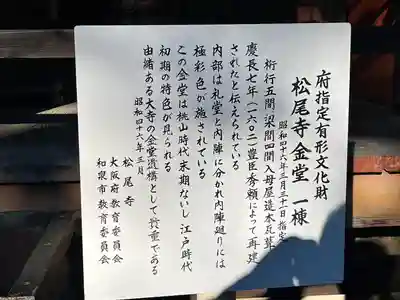 府指定有形文化財
松尾寺金堂 一棟
昭和四十六年三月三十一日指定
桁行五間 梁間四間 入母屋造本瓦葺
慶長七年(一六〇二)豊臣秀頼によって再建
されたと伝えられている
内部は礼堂と内陣に分かれ内陣廻りには
極彩色が施されている
この金堂は桃山時代末期ないし江戸時代
初期の特色が見られる
由緒ある大寺の金堂遺構として貴重である
昭和四十六年三月
松尾寺
大阪府教育委員会
和泉市教育委員会